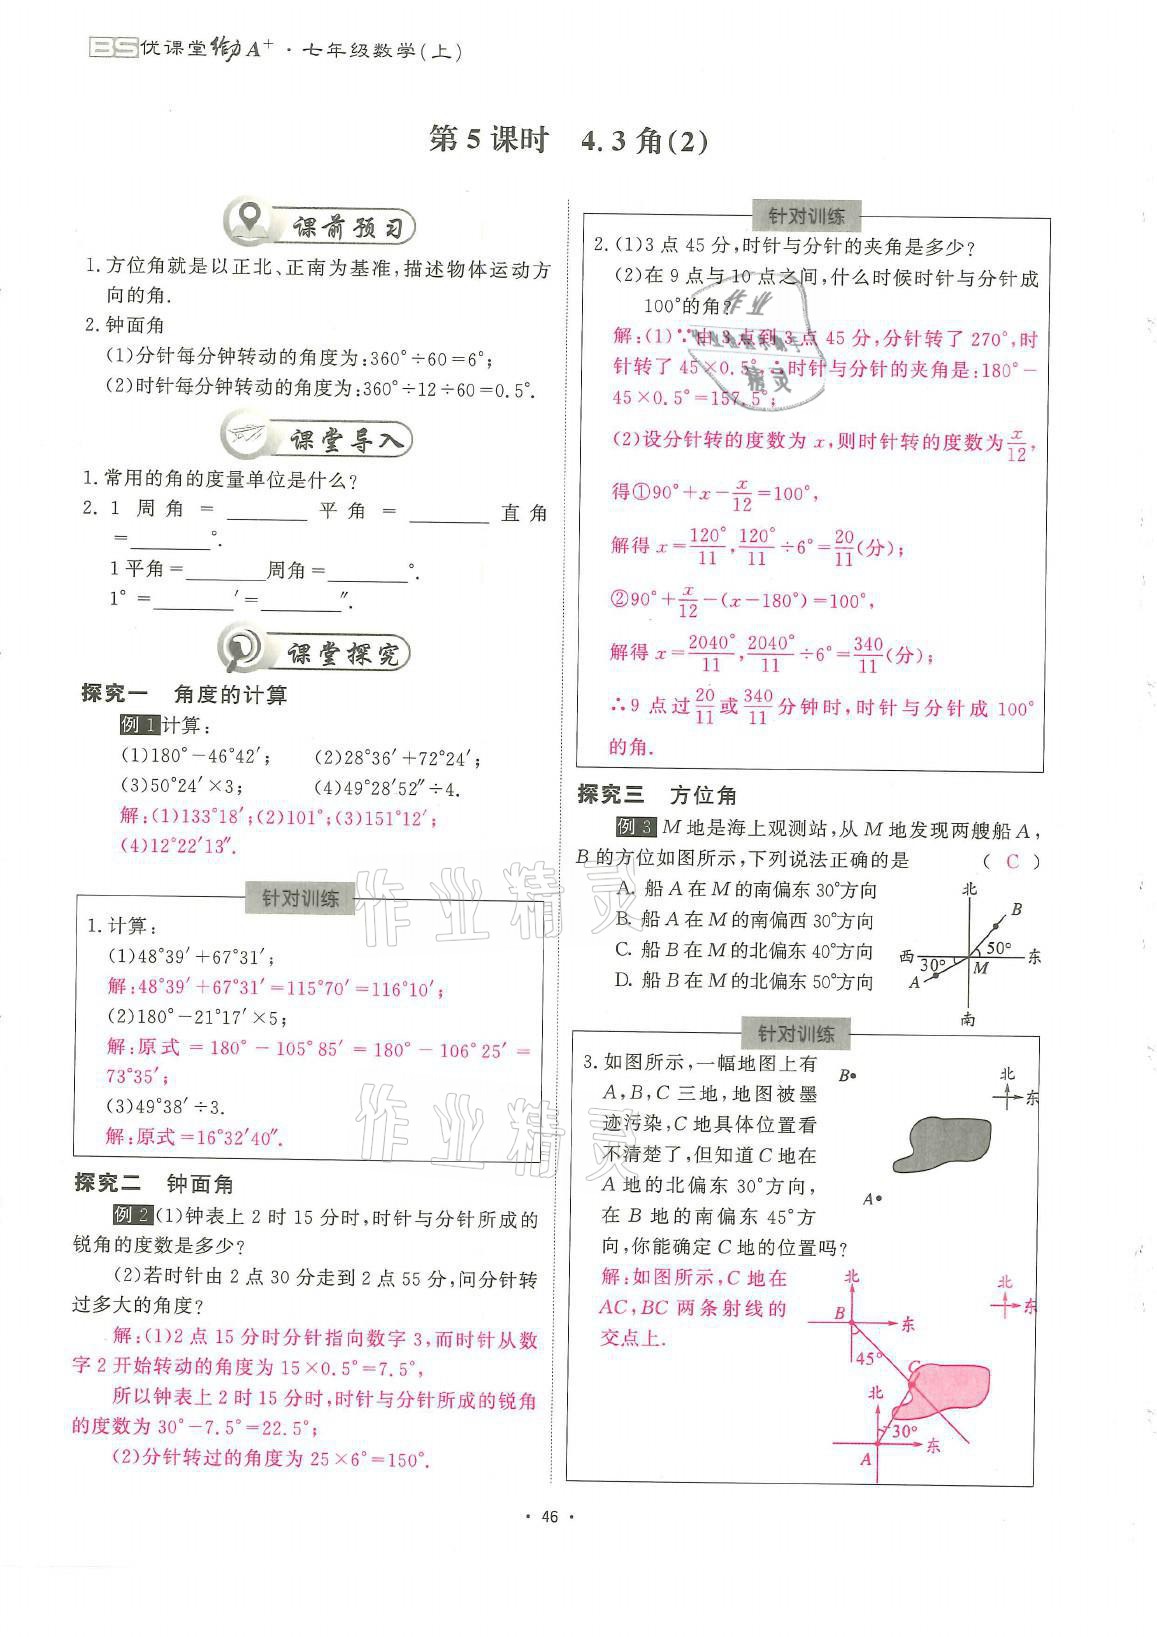 BS优课堂给力A⁺·七年级数学(上)
第5课时 4.3角(2)
课前预习
1.方位角就是以正北、正南为基准,描述物体运动方
向的角.
2.钟面角
(1)分针每分钟转动的角度为:360°÷60=6°;
(2)时针每分钟转动的角度为:360°÷12÷60=0.5°.
课堂导入
1.常用的角的度量单位是什么?
2.1周角=______平角=______直角
=______°.
1平角=______周角=______°.
1°=______′=______″.
课堂探究
探究一 角度的计算
例1 计算:
(1)180°-46°42′; (2)28°36′+72°24′;
(3)50°24′×3; (4)49°28′52″÷4.
解:(1)133°18′;(2)101°;(3)151°12′;
(4)12°22′13″.
针对训练
1.计算:
(1)48°39′+67°31′;
解:48°39′+67°31′=115°70′=116°10′;
(2)180°-21°17′×5;
解:原式=180°-105°85′=180°-106°25′=
73°35′;
(3)49°38′÷3.
解:原式=16°32′40″.
探究二 钟面角
例2 (1)钟表上2时15分时,时针与分针所成的
锐角的度数是多少?
(2)若时针由2点30分走到2点55分,问分针转
过多大的角度?
解:(1)2点15分时分针指向数字3,而时针从数
字2开始转动的角度为15×0.5°=7.5°,
所以钟表上2时15分时,时针与分针所成的锐角
的度数为30°-7.5°=22.5°;
(2)分针转过的角度为25×6°=150°.
针对训练
2.(1)3点45分,时针与分针的夹角是多少?
(2)在9点与10点之间,什么时候时针与分针成
100°的角?
解:(1)∵由3点到3点45分,分针转了270°,时
针转了45×0.5°,∴时针与分针的夹角是:180°-
45×0.5°=157.5°;
(2)设分针转的度数为x,则时针转的度数为x/12,
得①90°+x-x/12=100°,
解得x=120°/11,120°/11÷6°=20/11(分);
②90°+x/12-(x-180°)=100°,
解得x=2040°/11,2040°/11÷6°=340/11(分);
∴9点过20/11或340/11分钟时,时针与分针成100°
的角.
探究三 方位角
例3 M地是海上观测站,从M地发现两艘船A,
B的方位如图所示,下列说法正确的是 ( C )
A. 船A在M的南偏东30°方向
B. 船A在M的南偏西30°方向
C. 船B在M的北偏东40°方向
D. 船B在M的北偏东50°方向
北
B
50°
西
东
30°
M
A
南
针对训练
3.如图所示,一幅地图上有
A,B,C三地,地图被墨
迹污染,C地具体位置看
不清楚了,但知道C地在
A地的北偏东30°方向,
在B地的南偏东45°方
向,你能确定C地的位置吗?
B
北
东
A
解:如图所示,C地在
AC,BC两条射线的
交点上.
北
B
东
45°
C
北
30°
东
A
北
东
作业
精灵
作业精灵
作业精灵
·46·